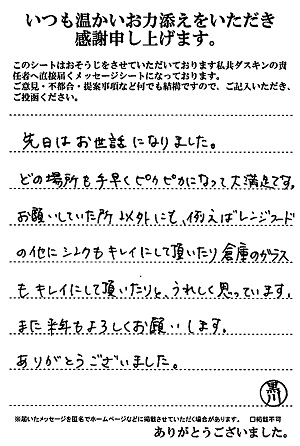 いつも温かいお力添えをいただき
感謝申し上げます。
このシートはおそうじをさせていただいております私共ダスキンの責
任者へ直接届くメッセージシートになっております。
ご意見・不都合・提案事項など何でも結構ですので、ご記入いただき、
ご投函ください。
先日はお世話になりました。
どの場所も手早くピカピカになって大満足です。
お願いしていた所以外にも、例えばレンジフード
の他にシンクもキレイにして頂いたり倉庫のガラス
もキレイにして頂いたりと、うれしく思っています。
また来年もよろしくお願いします。
ありがとうございました。
黒川
※届いたメッセージを匿名でホームページなどに掲載させていただく場合があります。 □掲載不可
ありがとうございました。